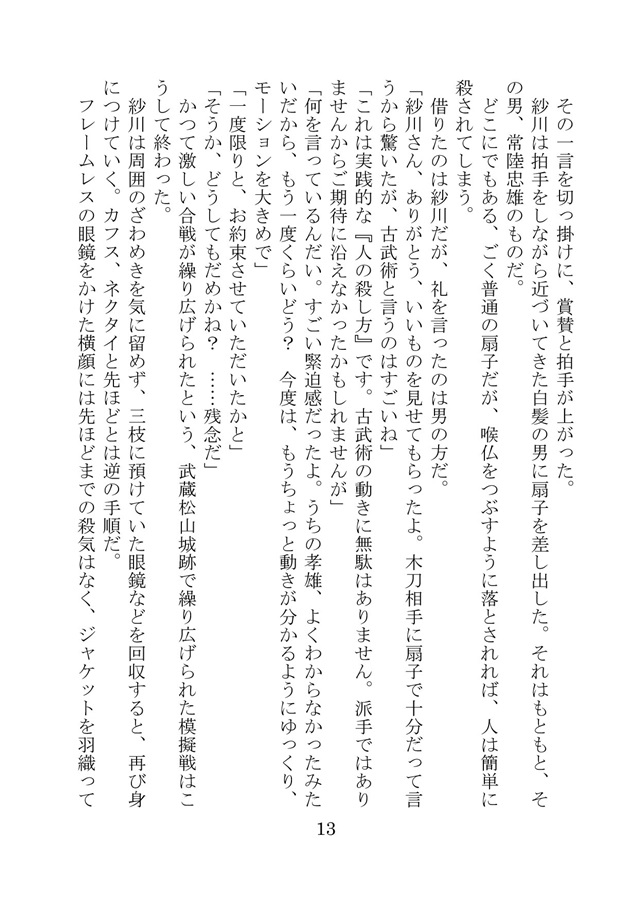 その一言を切っ掛けに、賞賛と拍手が上がった。
紗川は拍手をしながら近づいてきた白髪の男に扇子を差し出した。それはもともと、そ
の男、常陸忠雄のものだ。
どこにでもある、ごく普通の扇子だが、喉仏をつぶすように落とされれば、人は簡単に
殺されてしまう。
借りたのは紗川だが、礼を言ったのは男の方だ。
「紗川さん、ありがとう、いいものを見せてもらったよ。木刀相手に扇子で十分だって言
うから驚いたが、古武術と言うのはすごいね」
「これは実践的な『人の殺し方』です。古武術の動きに無駄はありません。派手ではあり
ませんからご期待に沿えなかったかもしれませんが」
「何を言っているんだい。すごい緊迫感だったよ。うちの孝雄、よくわからなかったみた
いだから、もう一度くらいどう？　今度は、もうちょっと動きが分かるようにゆっくり、
モーションを大きめで」
「一度限りと、お約束させていただいたかと」
「そうか、どうしてもだめかね？　……残念だ」
かつて激しい合戦が繰り広げられたという、武蔵松山城跡で繰り広げられた模擬戦はこ
うして終わった。
紗川は周囲のざわめきを気に留めず、三枝に預けていた眼鏡などを回収すると、再び身
につけていく。カフス、ネクタイと先ほどとは逆の手順だ。
フレームレスの眼鏡をかけた横顔には先ほどまでの殺気はなく、ジャケットを羽織って
13